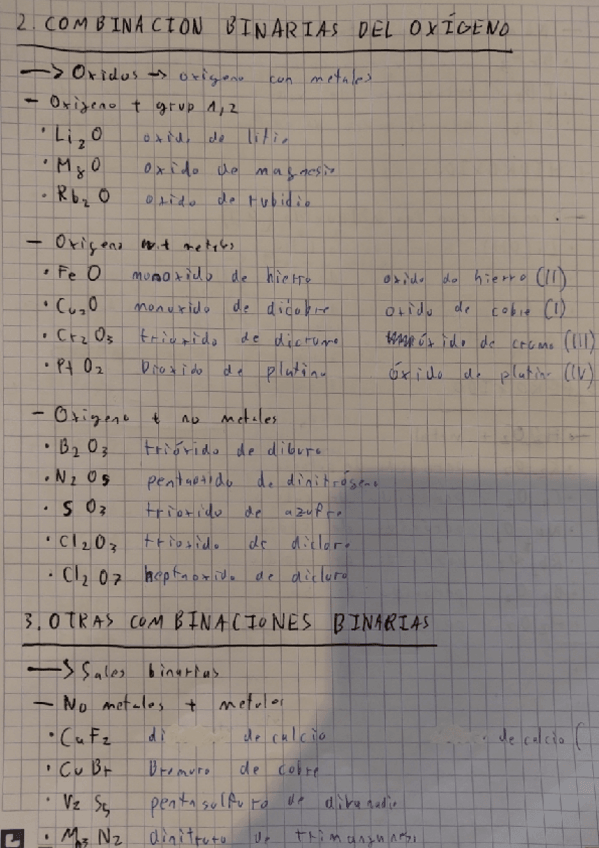 2. COMBINACION BINARIAS DEL OXÍGENO
—> Oxidos → oxigeno con metales
- Oxigeno + grup 1,2
· Li2O oxido de litio
· MgO oxido de magnesio
· Rb2O oxido de rubidio
- Oxigeno + metales
· FeO monoxido de hierro oxido de hierro (II)
· Cu2O monoxido de dicobre oxido de cobre (I)
· Cr2O3 trioxido de dicromo óxido de cromo (III)
· PtO2 Dioxido de platino óxido de platino (IV)
- Oxigeno + no metales
· B2O3 trióxido de diboro
· N2O5 pentaoxido de dinitrógeno
· SO3 trioxido de azufre
· Cl2O3 trioxido de dicloro
· Cl2O7 heptaoxido de dicloro
3. OTRAS COMBINACIONES BINARIAS
—> Sales binarias
- No metales + metales
· CaF2 di de calcio de calcio (
· CuBr Bromuro de cobre
· V2S5 pentasulfuro de divanadio
· Mn3N2 dinitruro de trimanganeso